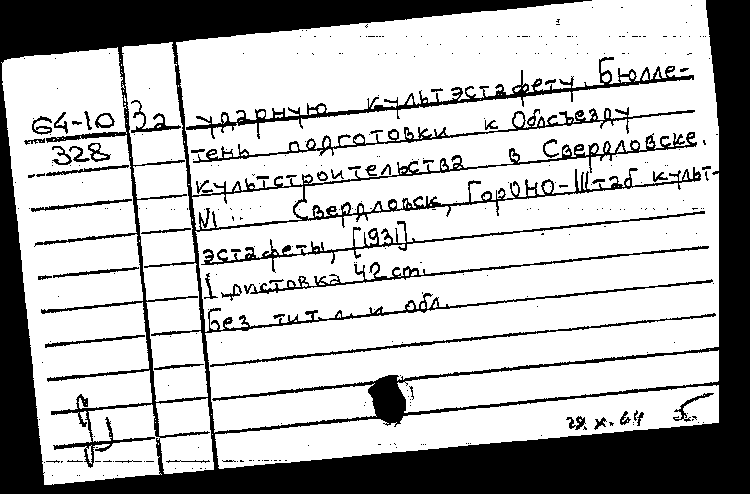 64-10 За ударную культэстафету. Бюлле-
328 тень подготовки к Облсъезду
культстроительства в Свердловске.
N1. Свердловск, ГорОНО-Штаб культ-
эстафеты, [1931].
1 листовка 42 cm.
Без тит. л. и обл.
29.X.64